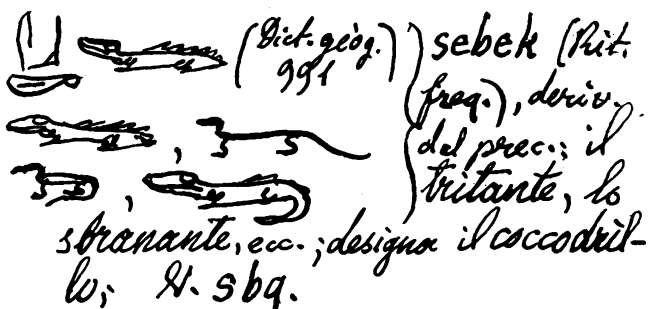 (Dict. géog. 991) sebek (Rit.
freq.), deriv.
dal prec.; il
tritante, lo
sbranante, ecc.; designa il coccodril-
lo; V. sbq.